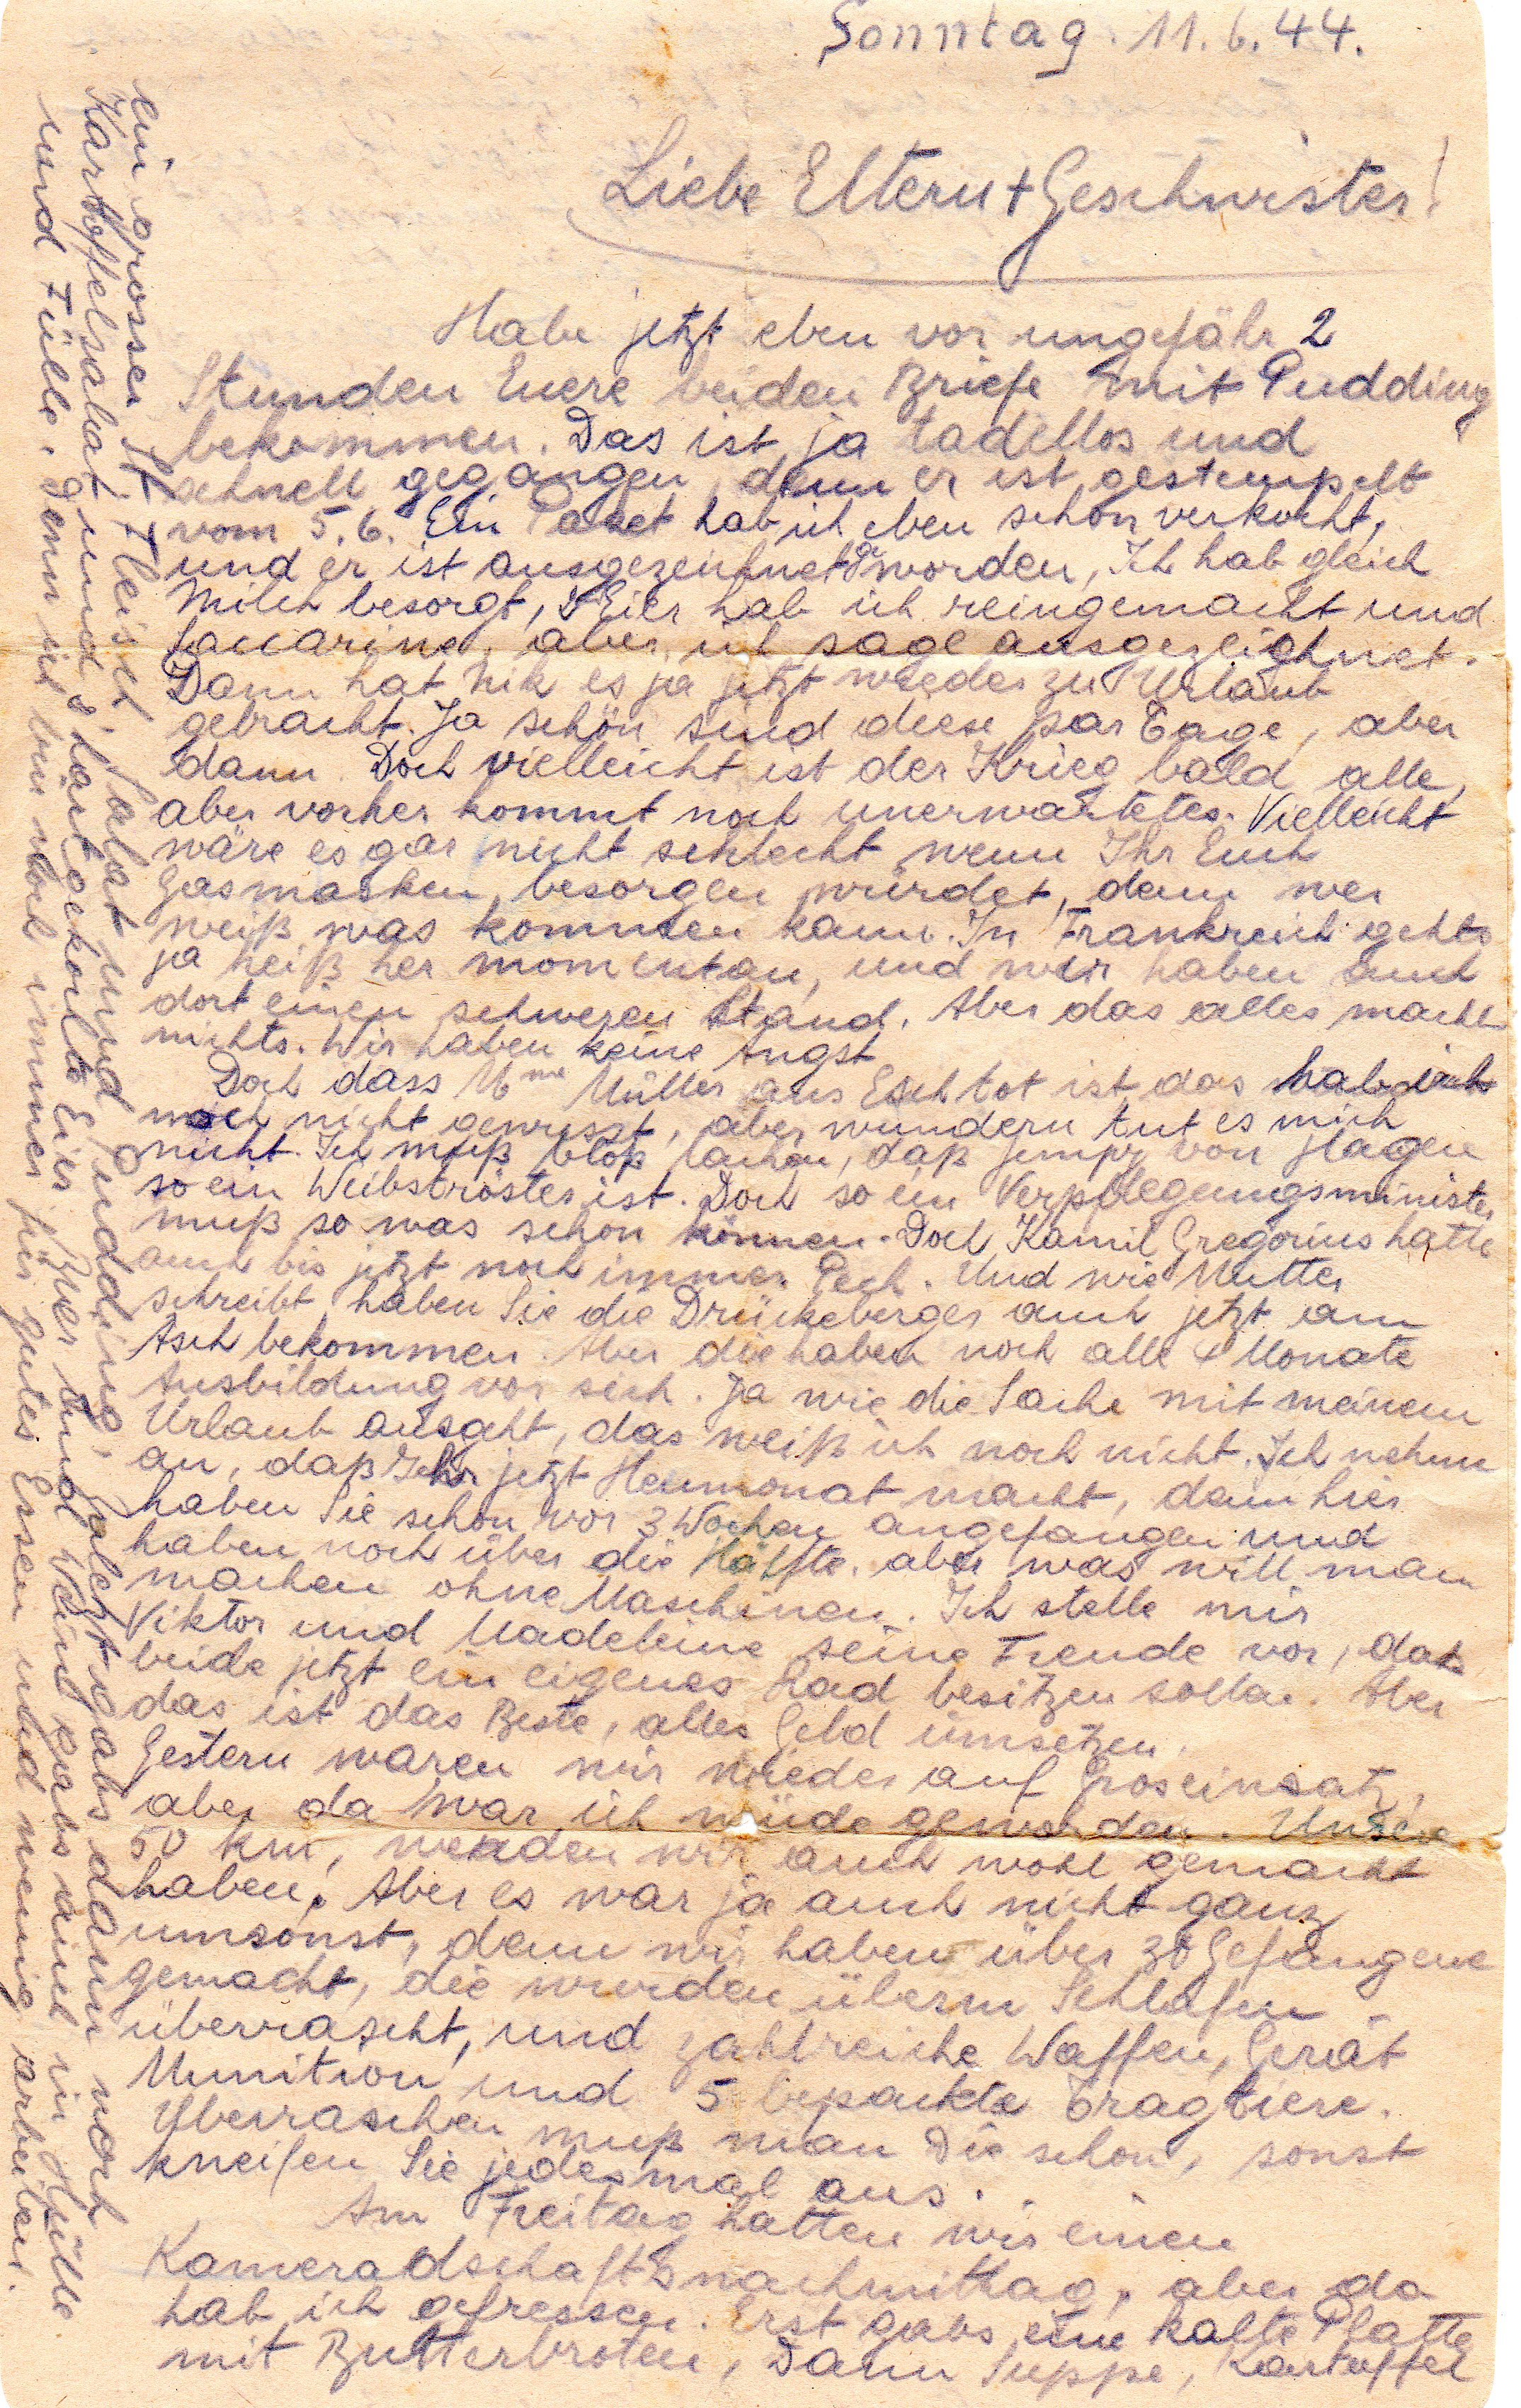 Sonntag. 11.6.44.
Liebe Eltern + Geschwister!
Habe jetzt eben vor ungefähr 2
Stunden Euere beiden Briefe mit Pudding
bekommen. Das ist ja tadellos und
schnell gegangen, denn er ist gestempelt
vom 5.6. Ein Paket hab ich eben schon verkocht,
und er ist ausgezeichnet geworden, Ich hab gleich
Milch besorgt, Eier hab ich reingemacht und
Saccarine, aber ich sage ausgezeichnet.
Dann hat Nik es ja jetzt wieder zu Urlaub
gebracht. Ja schön sind diese par Tage, aber
dann. Doch vielleicht ist der Krieg bald alle,
aber vorher kommt noch unerwartetes. Vielleicht
wäre es gar nicht schlecht wenn Ihr Euch
Gasmasken besorgen würdet, denn wer
weiß was kommen kann. In Frankreich gehts
ja heiß her momentan, und wir haben auch
dort einen schweren Stand. Aber das alles macht
nichts. Wir haben keine Angst
Doch dass Mme Müller aus Esch tot ist das hab ich
noch nicht gewusst, aber wundern tut es mich
nicht. Ich muß bloß lachen, daß Jempy von Hagen
so ein Weibströster ist. Doch so ein Verpflegungsminister
muß so was schon können. Doch Kamil Gregorius hatte
auch bis jetzt noch immer Pech. Und wie Mutter
schreibt haben Sie die Drückeberger auch jetzt am
Asch bekommen. Aber die haben noch alle 4 Monate
Ausbildung vor sich. Ja wie die Sache mit meinem
Urlaub ausgeht, das weiß ich noch nicht. Ich nehme
an, daß Ihr jetzt Heumonat macht, denn hier
haben Sie schon vor 3 Wochen angefangen und
haben noch über die Hälfte. aber was will man
machen ohne Maschinen. Ich stelle mir
Viktor und Madeleine seine Freude vor, daß
beide jetzt ein eigenes Rad besitzen sollen. Aber
das ist das Beste, alles Geld umsetzen.
Gestern waren wir wieder auf Groseinsatz,
aber da war ich müde geworden. Unsere
50 km, werden wir auch wohl gemacht
haben. Aber es war ja auch nicht ganz
umsonst, denn wir haben über 30 Gefangene
gemacht, die wurden überm Schlafen
überrascht, und zahlreiche Waffen, Gerät
Munition und 5 bepackte Tragtiere.
Überraschen muß man Die schon, sonst
kneifen Sie jedesmal aus.
Am Freitag hatten wir einen
Kameradschaftsnachmittag, aber da
hab ich gefressen. Erst gabs eine kalte Platte
mit Butterbroten, Dann Suppe, Kartoffel
ein grosser Fleisch, Salat und Pudding, zuletzt gabs dann noch
Kartoffelsalat und hartgekochte Eier, Bier und Wein gabs auch in Hülle
und Fülle. Denn ich bin noch immer für gutes Essen und wenig arbeiten.